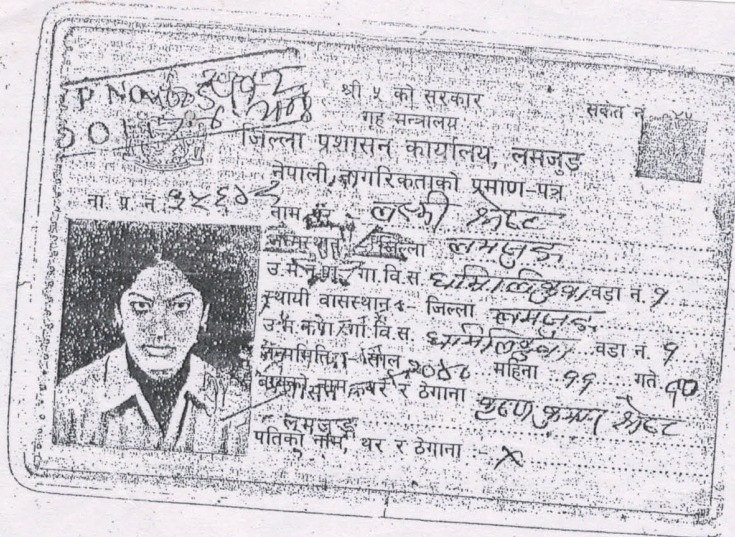 श्री ५ को सरकार
गृह मन्त्रालय
संकेत नं. ४५
जिल्ला प्रशासन कार्यालय, लमजुङ
नेपाली नागरिकताको प्रमाण-पत्र
ना. प्र. नं.
नाम थर :- लक्ष्मी श्रेष्ठ
जन्मस्थान :- जिल्ला लमजुङ
उ.म.न.पा./गा.वि.स. धामिलिकुवा वडा नं. १
स्थायी वासस्थान :- जिल्ला लमजुङ
उ.म.न.पा./गा.वि.स. धामिलिकुवा वडा नं. १
जन्ममिति :- साल २०४८ महिना ११ गते १०
बाबुको नाम, थर र ठेगाना कृष्ण कुमार श्रेष्ठ
लमजुङ
पतिको नाम, थर र ठेगाना :- X